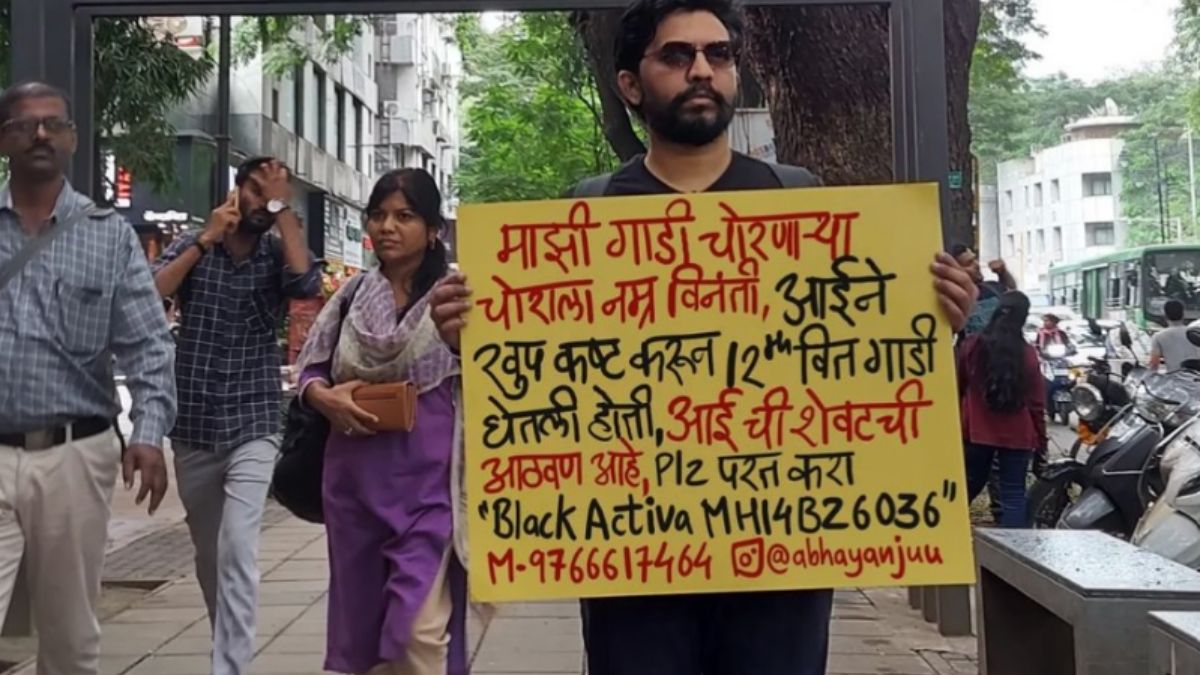 माझी गाडी चोरणाऱ्या
चोराला नम्र विनंती, आईने
खुप कष्ट करून 12th वित गाडी
घेतली होती, आई ची शेवटची
आठवण आहे, Plz परत करा
"Black Activa MH14BZ6036"
M-9766617464 @abhayanjuu